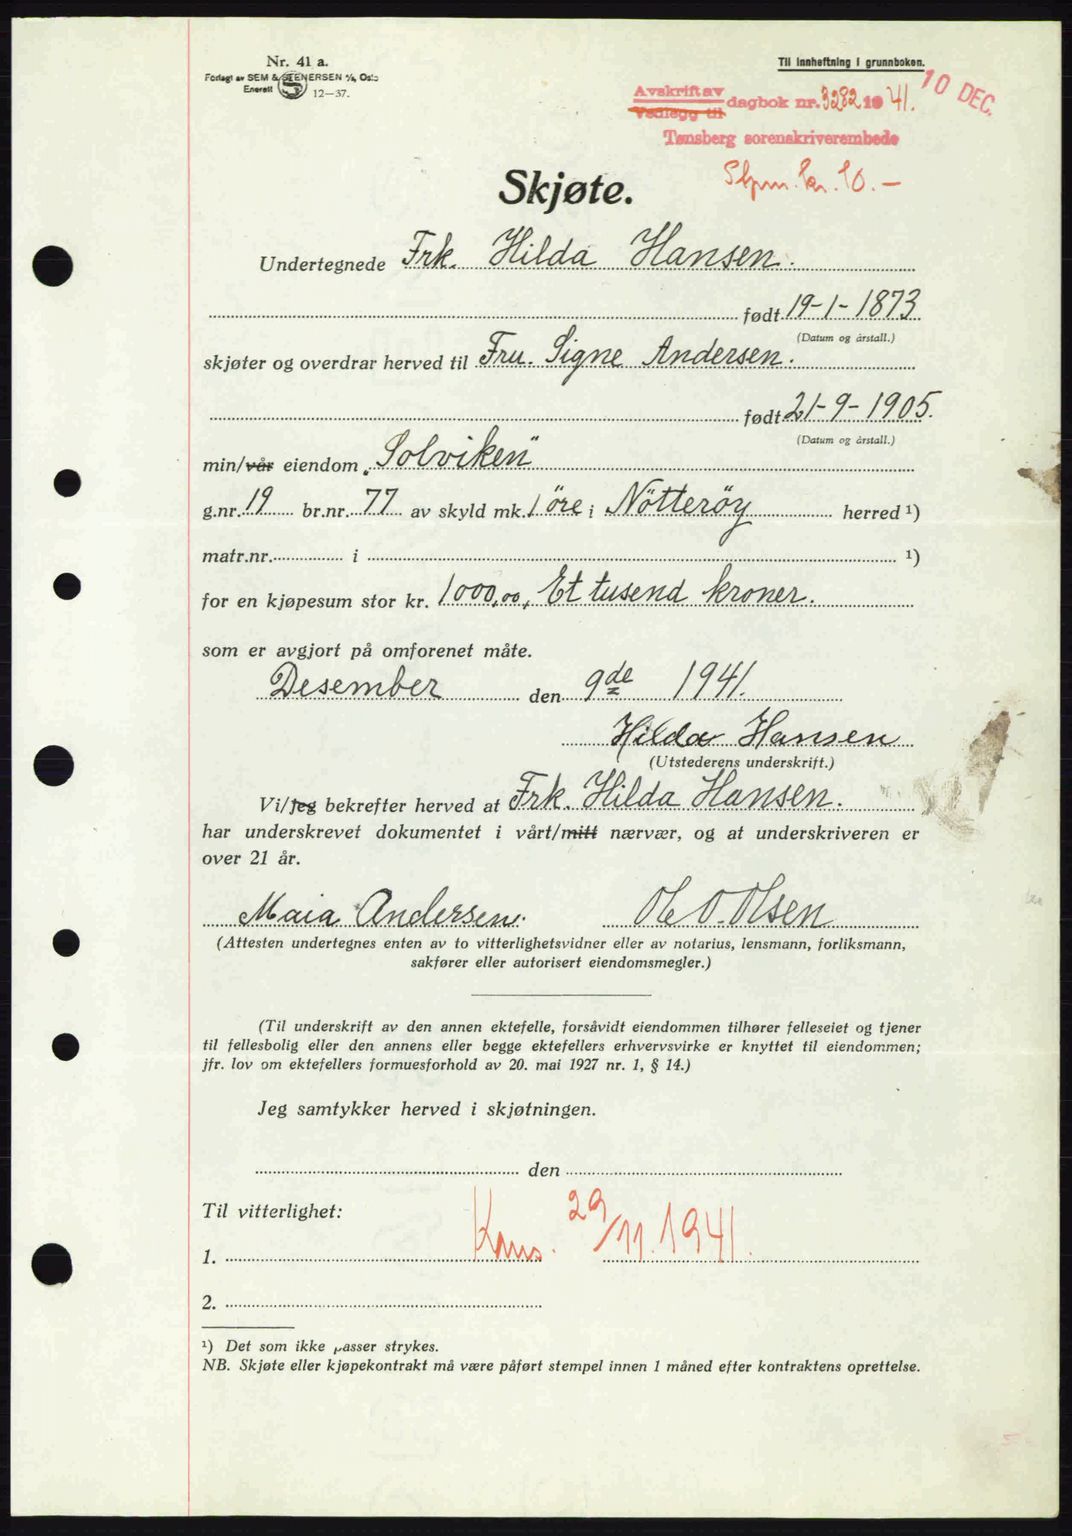 Nr. 41 a.
Forlagt av SEM & STENERSEN A/S, Oslo
Enerett
12—37.
Til innheftning i grunnboken.
10 DEC.
Avskrift av
Vedlegg til
dagbok nr. 3282 1941.
Tønsberg sorenskriverembede
Stpm. kr. 10.—
Skjøte.
Undertegnede Frk. Hilda Hansen.
født 19-1-1873
(Datum og årstall.)
skjøter og overdrar herved til Fru. Signe Andersen.
født 21-9-1905.
(Datum og årstall.)
min/vår eiendom „Solviken"
g.nr. 19 br.nr. 77 av skyld mk. 1 öre i Nötteröy herred ¹)
matr.nr. i ¹)
for en kjøpesum stor kr. 1000,00, Et tusend kroner.
som er avgjort på omforenet måte.
Desember den 9de 1941.
Hilda Hansen
(Utstederens underskrift.)
Vi/jeg bekrefter herved at Frk. Hilda Hansen.
har underskrevet dokumentet i vårt/mitt nærvær, og at underskriveren er
over 21 år.
Maia Andersen. Ole O. Olsen
(Attesten undertegnes enten av to vitterlighetsvidner eller av notarius, lensmann, forliksmann,
sakfører eller autorisert eiendomsmegler.)
(Til underskrift av den annen ektefelle, forsåvidt eiendommen tilhører felleseiet og tjener
til fellesbolig eller den annens eller begge ektefellers erhvervsvirke er knyttet til eiendommen;
jfr. lov om ektefellers formuesforhold av 20. mai 1927 nr. 1, § 14.)
Jeg samtykker herved i skjøtningen.
den
Til vitterlighet:
Kons. 29/11. 1941.
1.
2.
¹) Det som ikke passer strykes.
NB. Skjøte eller kjøpekontrakt må være påført stempel innen 1 måned efter kontraktens oprettelse.